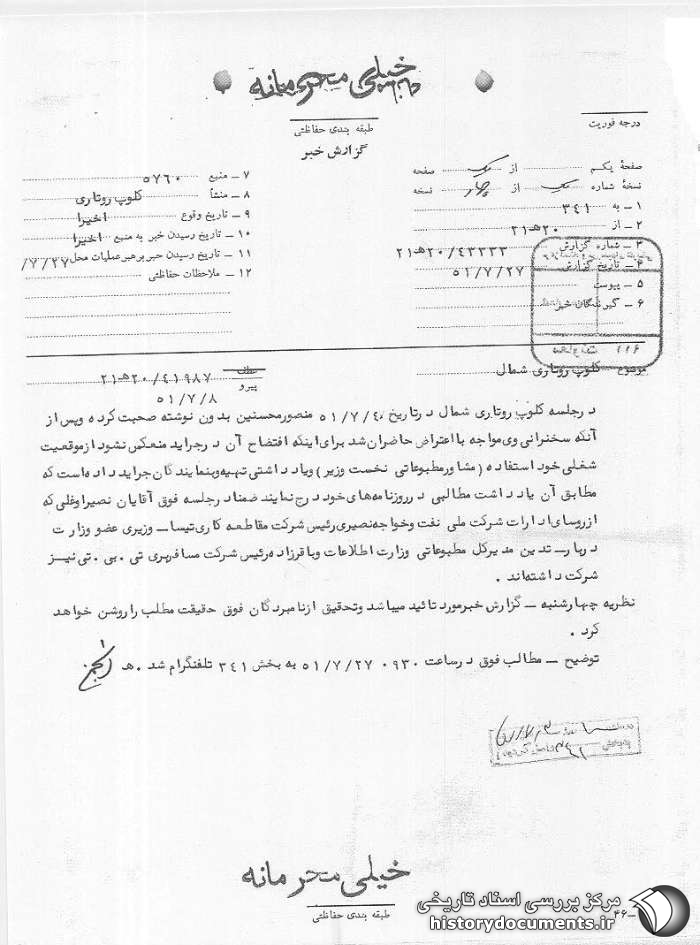 خیلی محرمانه
طبقه بندی حفاظتی
گزارش خبر
درجه فوریت
صفحه یکم از یک صفحه
نسخه شماره یک از چهار نسخه
۱ ــ به ۳۴۱
۲ ــ از ۲۰هـ۲۱
۳ ــ شماره گزارش ۲۰/۴۳۳۳۳هـ۲۱
۴ ــ تاریخ گزارش ۵۱/۷/۲۷
۵ ــ پیوست
۶ ــ گیرندگان خبر
۷ ــ منبع ۵۷۶۰
۸ ــ منشأ کلوپ روتاری
۹ ــ تاریخ وقوع اخیرا
۱۰ ــ تاریخ رسیدن خبر به منبع اخیرا
۱۱ ــ تاریخ رسیدن خبر برهبر عملیات محل /۷/۲۷
۱۲ ــ ملاحظات حفاظتی
موضوع کلوپ روتاری شمال
عطف
پیرو ۲۰/۴۱۹۸۷هـ۲۱
۵۱/۷/۸
درجلسه کلوپ روتاری شمال درتاریخ ۵۱/۷/۴ منصورمحسنین بدون نوشته صحبت کرده وپس از
آنکه سخنرانی وی مواجه بااعتراض حاضران شد برای اینکه افتضاح آن درجراید منعکس نشود ازموقعیت
شغلی خود استفاده (مشاورمطبوعاتی نخست وزیر) ویادداشتی تهیه وبنمایندگان جراید داده است که
مطابق آن یادداشت مطالبی درروزنامه های خود درج نمایند ضمنا درجلسه فوق آقایان نصیراوغلی که
ازروسای ادارات شرکت ملی نفت وخواجه نصیری رئیس شرکت مقاطعه کاری تیسا ــ وزیری عضو وزارت
دربار ــ تدین مدیرکل مطبوعاتی وزارت اطلاعات وباقرزاده رئیس شرکت مسافربری تی . بی . تی نیز
شرکت داشته اند .
نظریه چهارشنبه ــ گزارش خبر مورد تائید میباشد وتحقیق ازنامبردگان فوق حقیقت مطلب را روشن خواهد
کرد .
توضیح ــ مطالب فوق درساعت ۰۹۳۰ ۵۱/۷/۲۷ به بخش ۳۴۱ تلفنگرام شد . هـ
خیلی محرمانه
طبقه بندی حفاظتی
۴۶ــ
مرکز بررسی اسناد تاریخی
historydocuments.ir